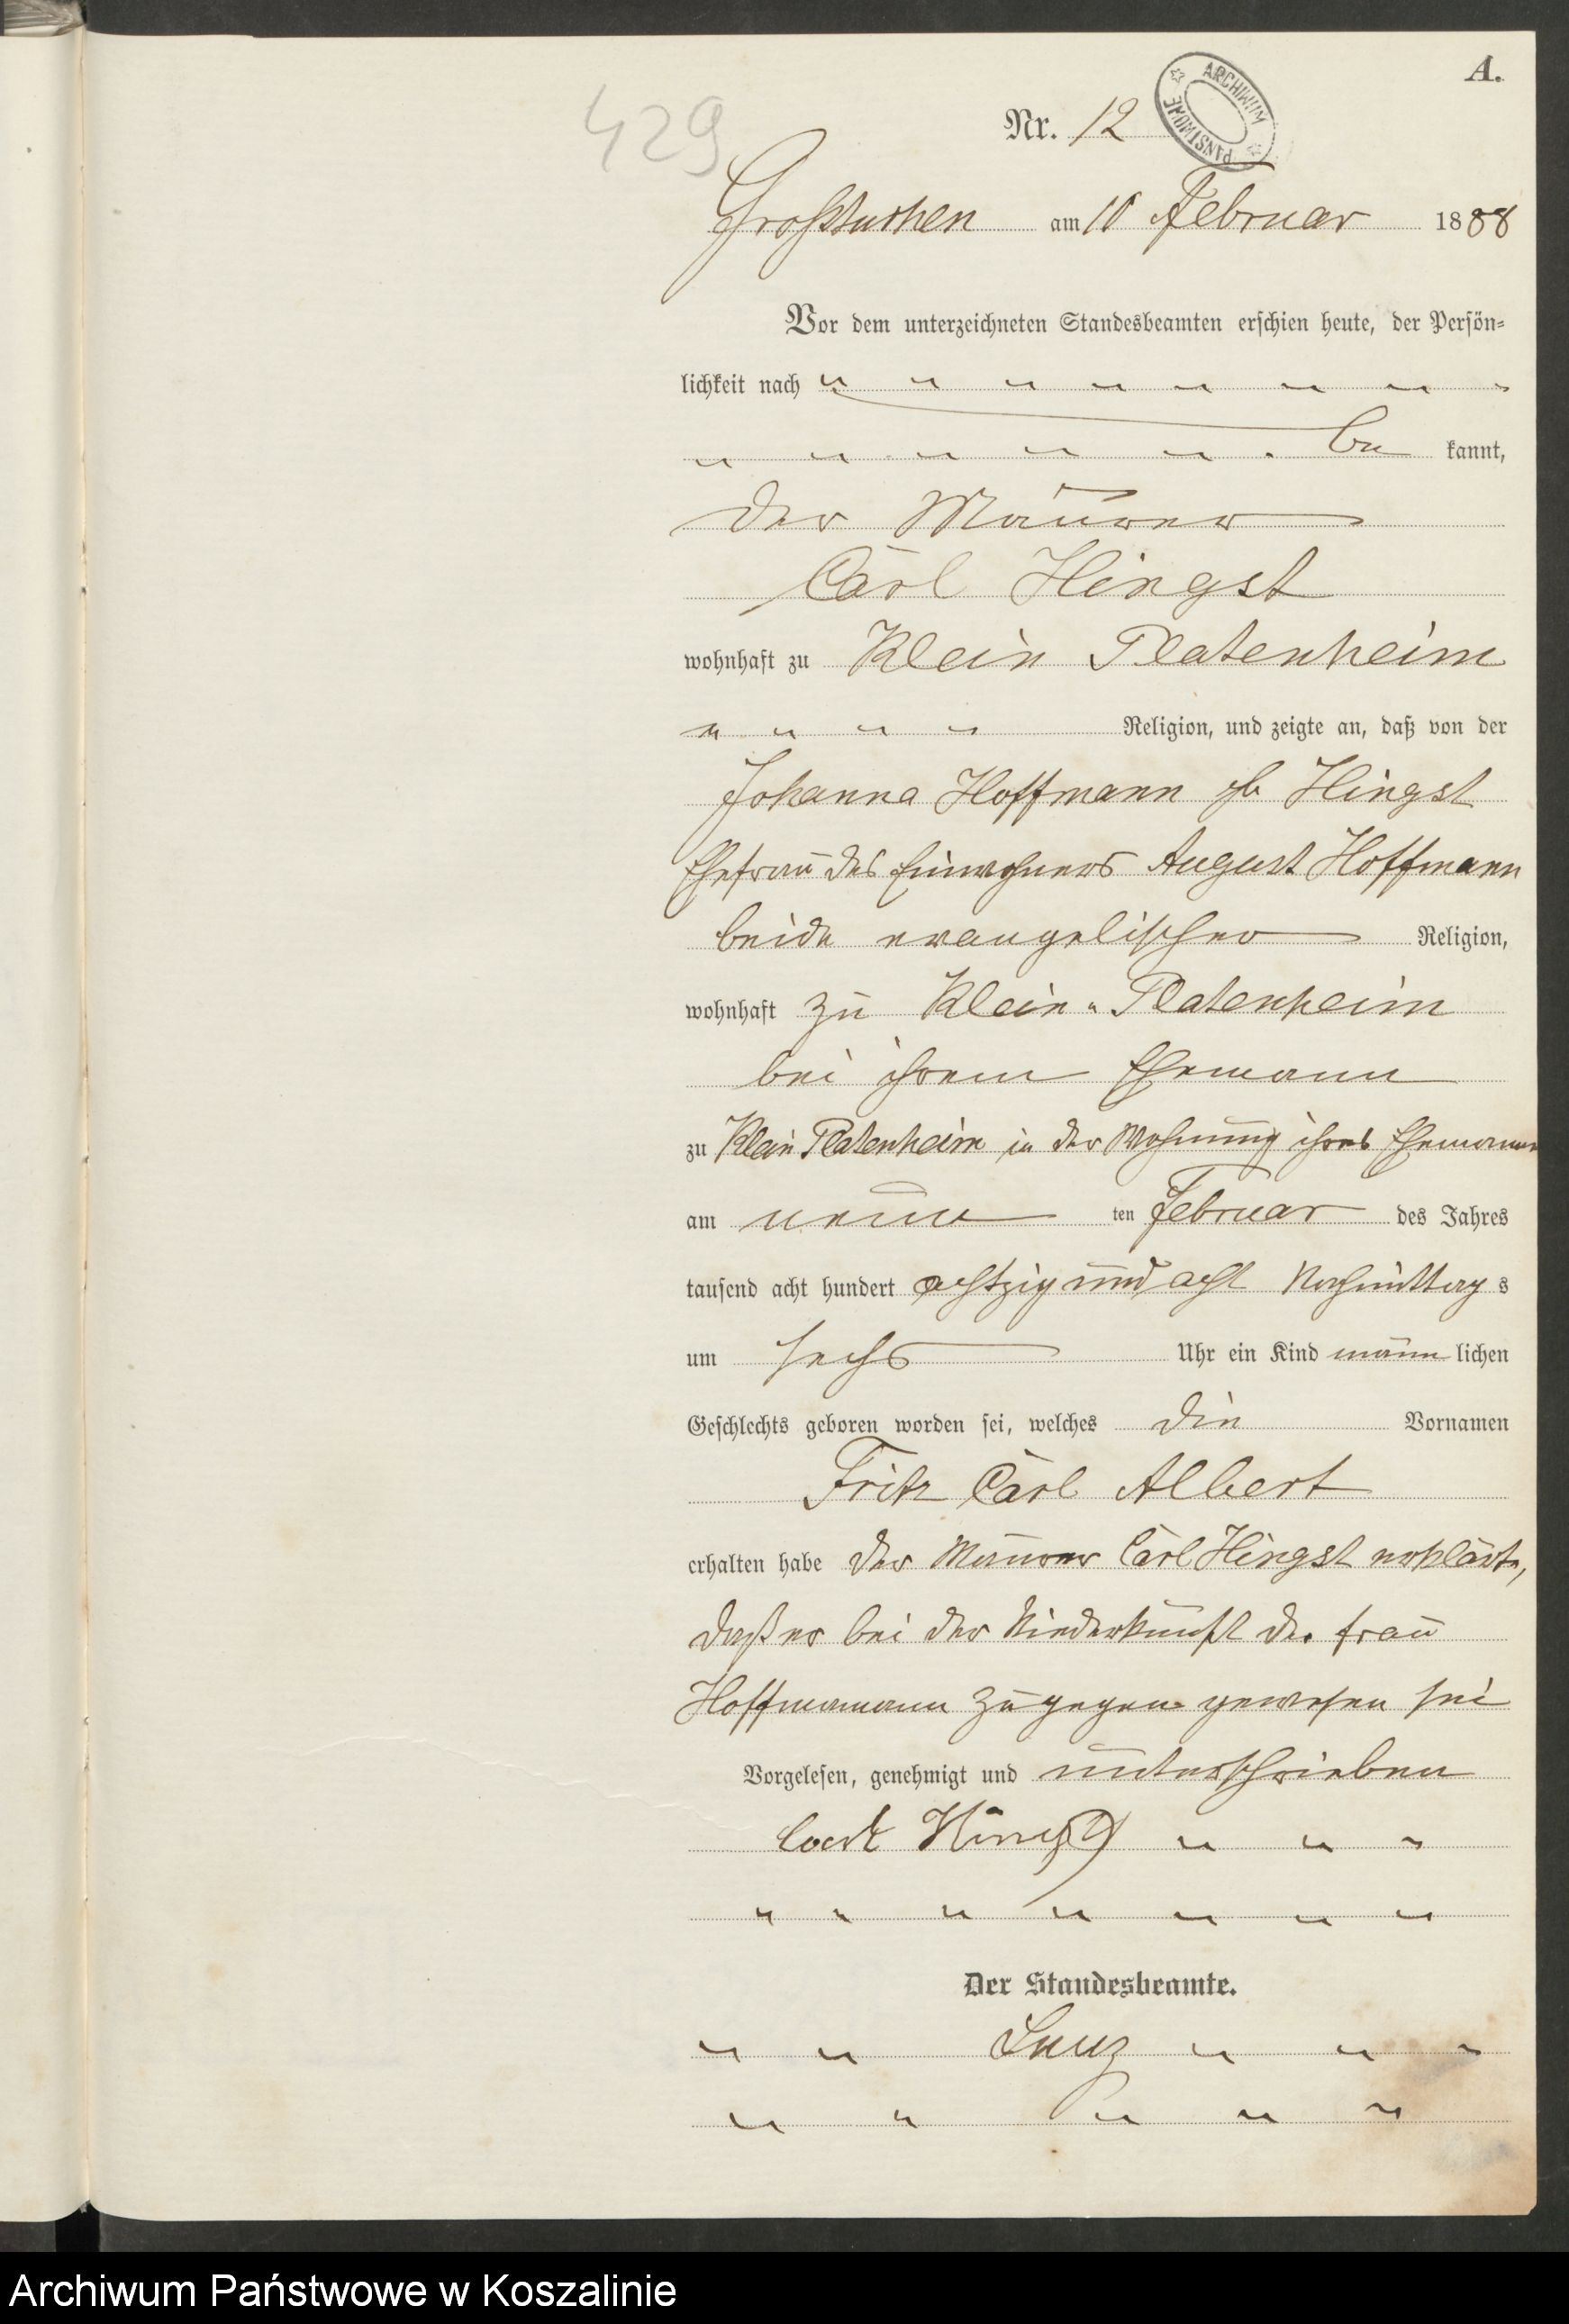 A.
429
Nr. 12
ARCHIWUM PAŃSTWOWE
Großtuchen am 10 Februar 1888
Vor dem unterzeichneten Standesbeamten erschien heute, der Persön-
lichkeit nach
be kannt,
der Maurer
Carl Hingst
wohnhaft zu Klein Platenheim
Religion, und zeigte an, daß von der
Johanna Hoffmann gb Hingst
Ehefrau des Einwohners August Hoffmann
beide evangelischer Religion,
wohnhaft zu Klein-Platenheim
bei ihrem Ehemann
zu Klein Platenheim in der Wohnung ihres Ehemannes
am neun ten Februar des Jahres
tausend acht hundert achtzig und acht Nachmittag s
um sechs Uhr ein Kind männ lichen
Geschlechts geboren worden sei, welches die Vornamen
Fritz Carl Albert
erhalten habe der Maurer Carl Hingst erklärte,
daß er bei der Niederkunft der Frau
Hoffmamann zugegen gewesen sei
Vorgelesen, genehmigt und unterschrieben
Carl Hingst
Der Standesbeamte.
Archiwum Państwowe w Koszalinie